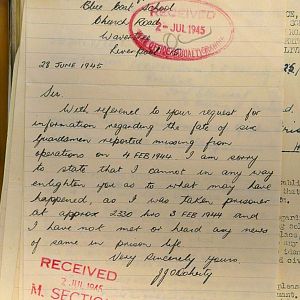 Blue Coat School
Church Road
Wavertree
Liverpool 15
RECEIVED
2-JUL 1945
28 JUNE 1945
Sir.
With reference to your request for
information regarding the fate of six
Guardsmen reported missing from
operations on 4 FEB 1944. I am sorry
to state that I cannot in any way
enlighten you as to what may have
happened, as I was taken prisoner
at approx 2330 hrs 3 FEB 1944 and
I have not met or heard any news
of same in prison life.
Very Sincerely Yours.
JJ Doherty
RECEIVED
2 JUL 1945
M. SECTION